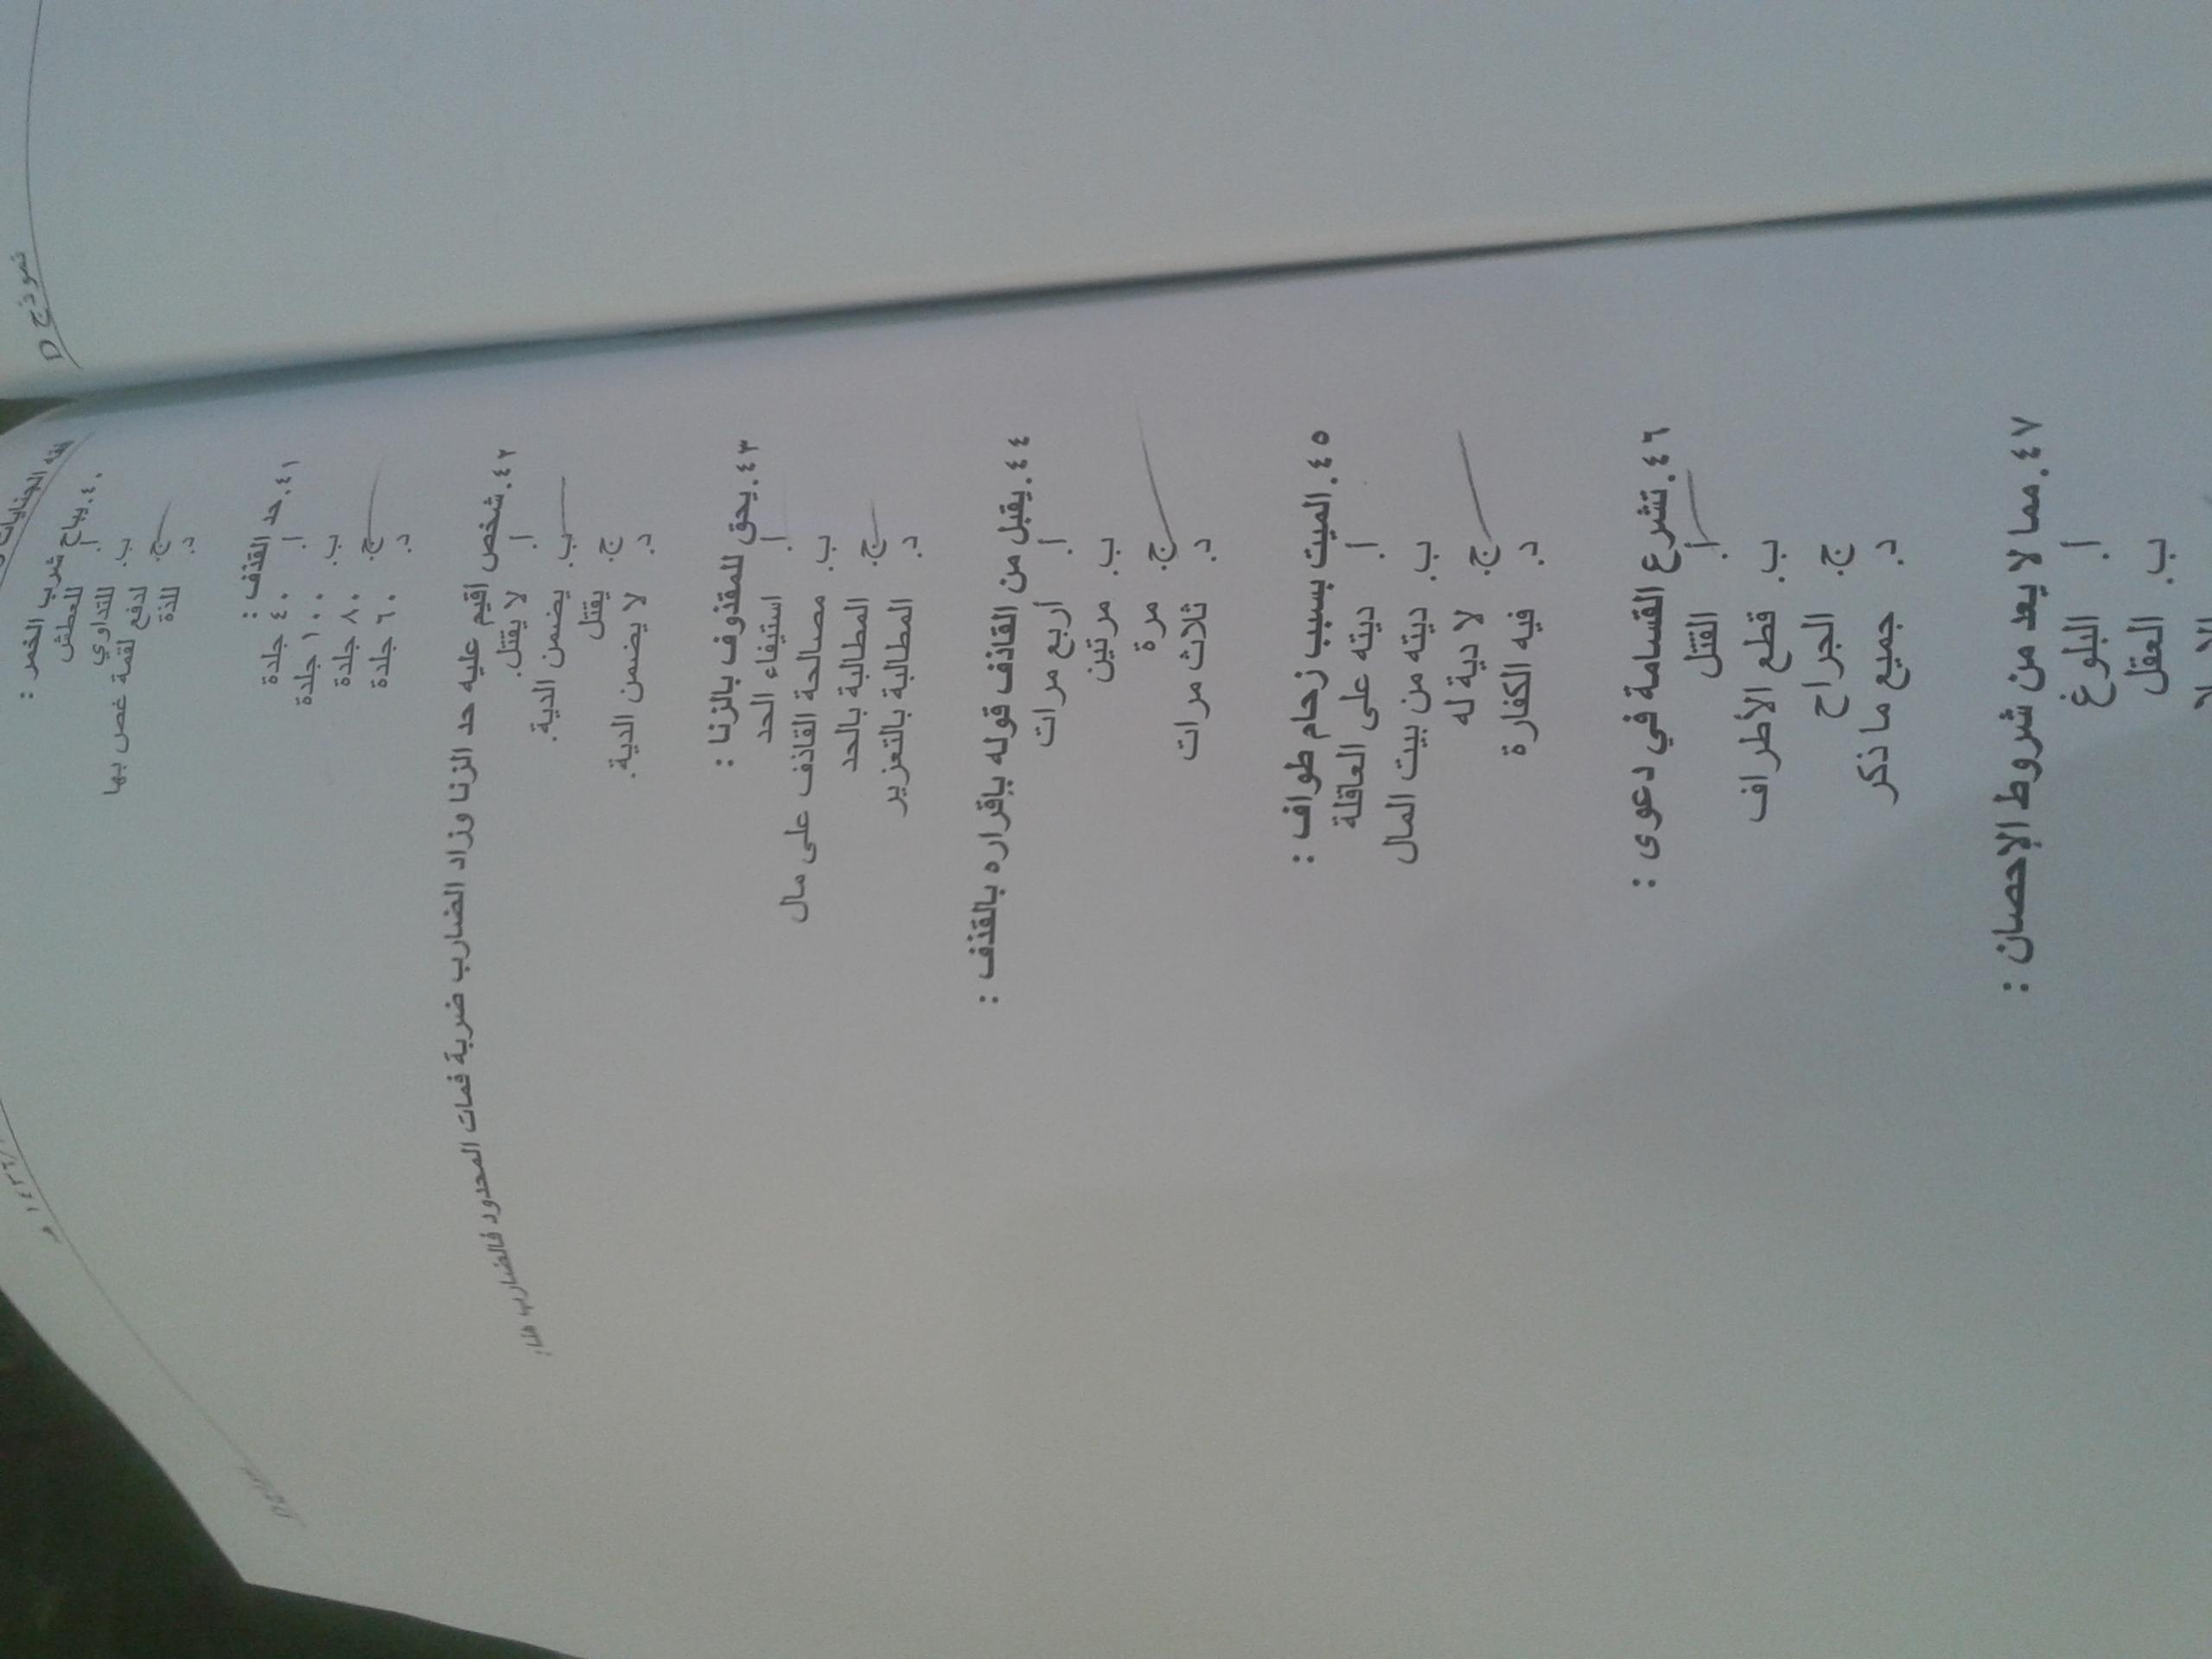 نموذج D
فقه الجنايات
٤٠. يباح شرب الخمر :
أ. للعطش
ب. للتداوي
ج. لدفع لقمة غص بها
د. للذة
٤١. حد القذف :
أ. ٤٠ جلدة
ب. ١٠٠ جلدة
ج. ٨٠ جلدة
د. ٦٠ جلدة
٤٢. شخص أقيم عليه حد الزنا وزاد الضارب ضربة فمات المحدود فالضارب هنا:
أ. لا يقتل.
ب. يضمن الدية.
ج. يقتل
د. لا يضمن الدية.
٤٣. يحق للمقذوف بالزنا :
أ. استيفاء الحد
ب. مصالحة القاذف على مال
ج. المطالبة بالحد
د. المطالبة بالتعزير
٤٤. يقبل من القاذف قوله بإقراره بالقذف :
أ. أربع مرات
ب. مرتين
ج. مرة
د. ثلاث مرات
٤٥. الميت بسبب زحام طواف :
أ. ديته على العاقلة
ب. ديته من بيت المال
ج. لا دية له
د. فيه الكفارة
٤٦. تشرع القسامة في دعوى :
أ. القتل
ب. قطع الأطراف
ج. الجراح
د. جميع ما ذكر
٤٧. مما لا يعد من شروط الإحصان :
أ. البلوغ
ب. العقل